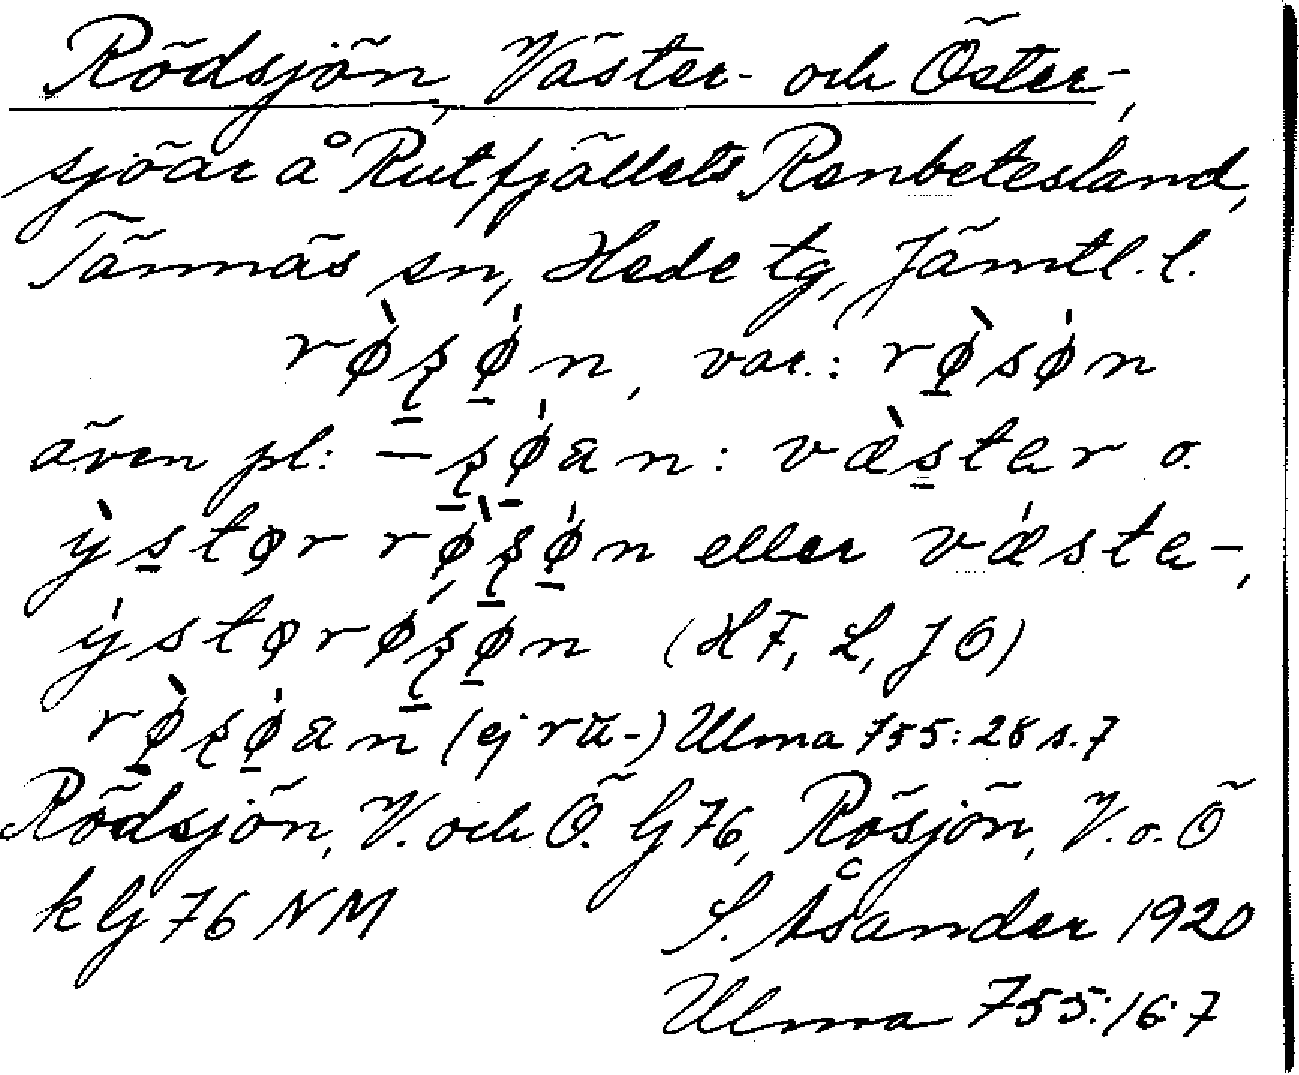 Rödsjön, Väster- och Öster-,
sjöar å Rutfjällets Renbetesland,
Tännäs sn, Hede tg, Jämtl. l.
rø̀ʂø̀n, var.: rø̀søn
även pl: -ʂøan: væ̀ster o.
ỳstør rø̀ʂøn eller væsta-,
ýstørøʂøn (HF, L, JO)
rø̀ʂøan (ej rä-) Ulma 755:28 s. 7
Rödsjön, V. och Ö. Gj 76, Rösjön, V. o. Ö
k Gj 76 NM S. Åsander 1920
Ulma 755:16:7